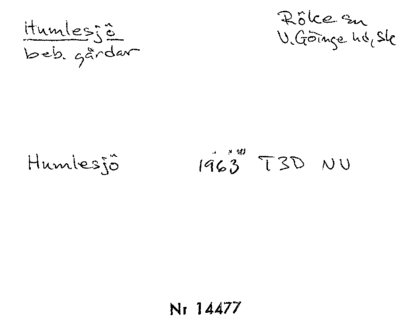 Humlesjö
beb. gårdar
Röke sn
V. Göinge hd, Sk
Humlesjö 1963 T3D NV
Nr 14477